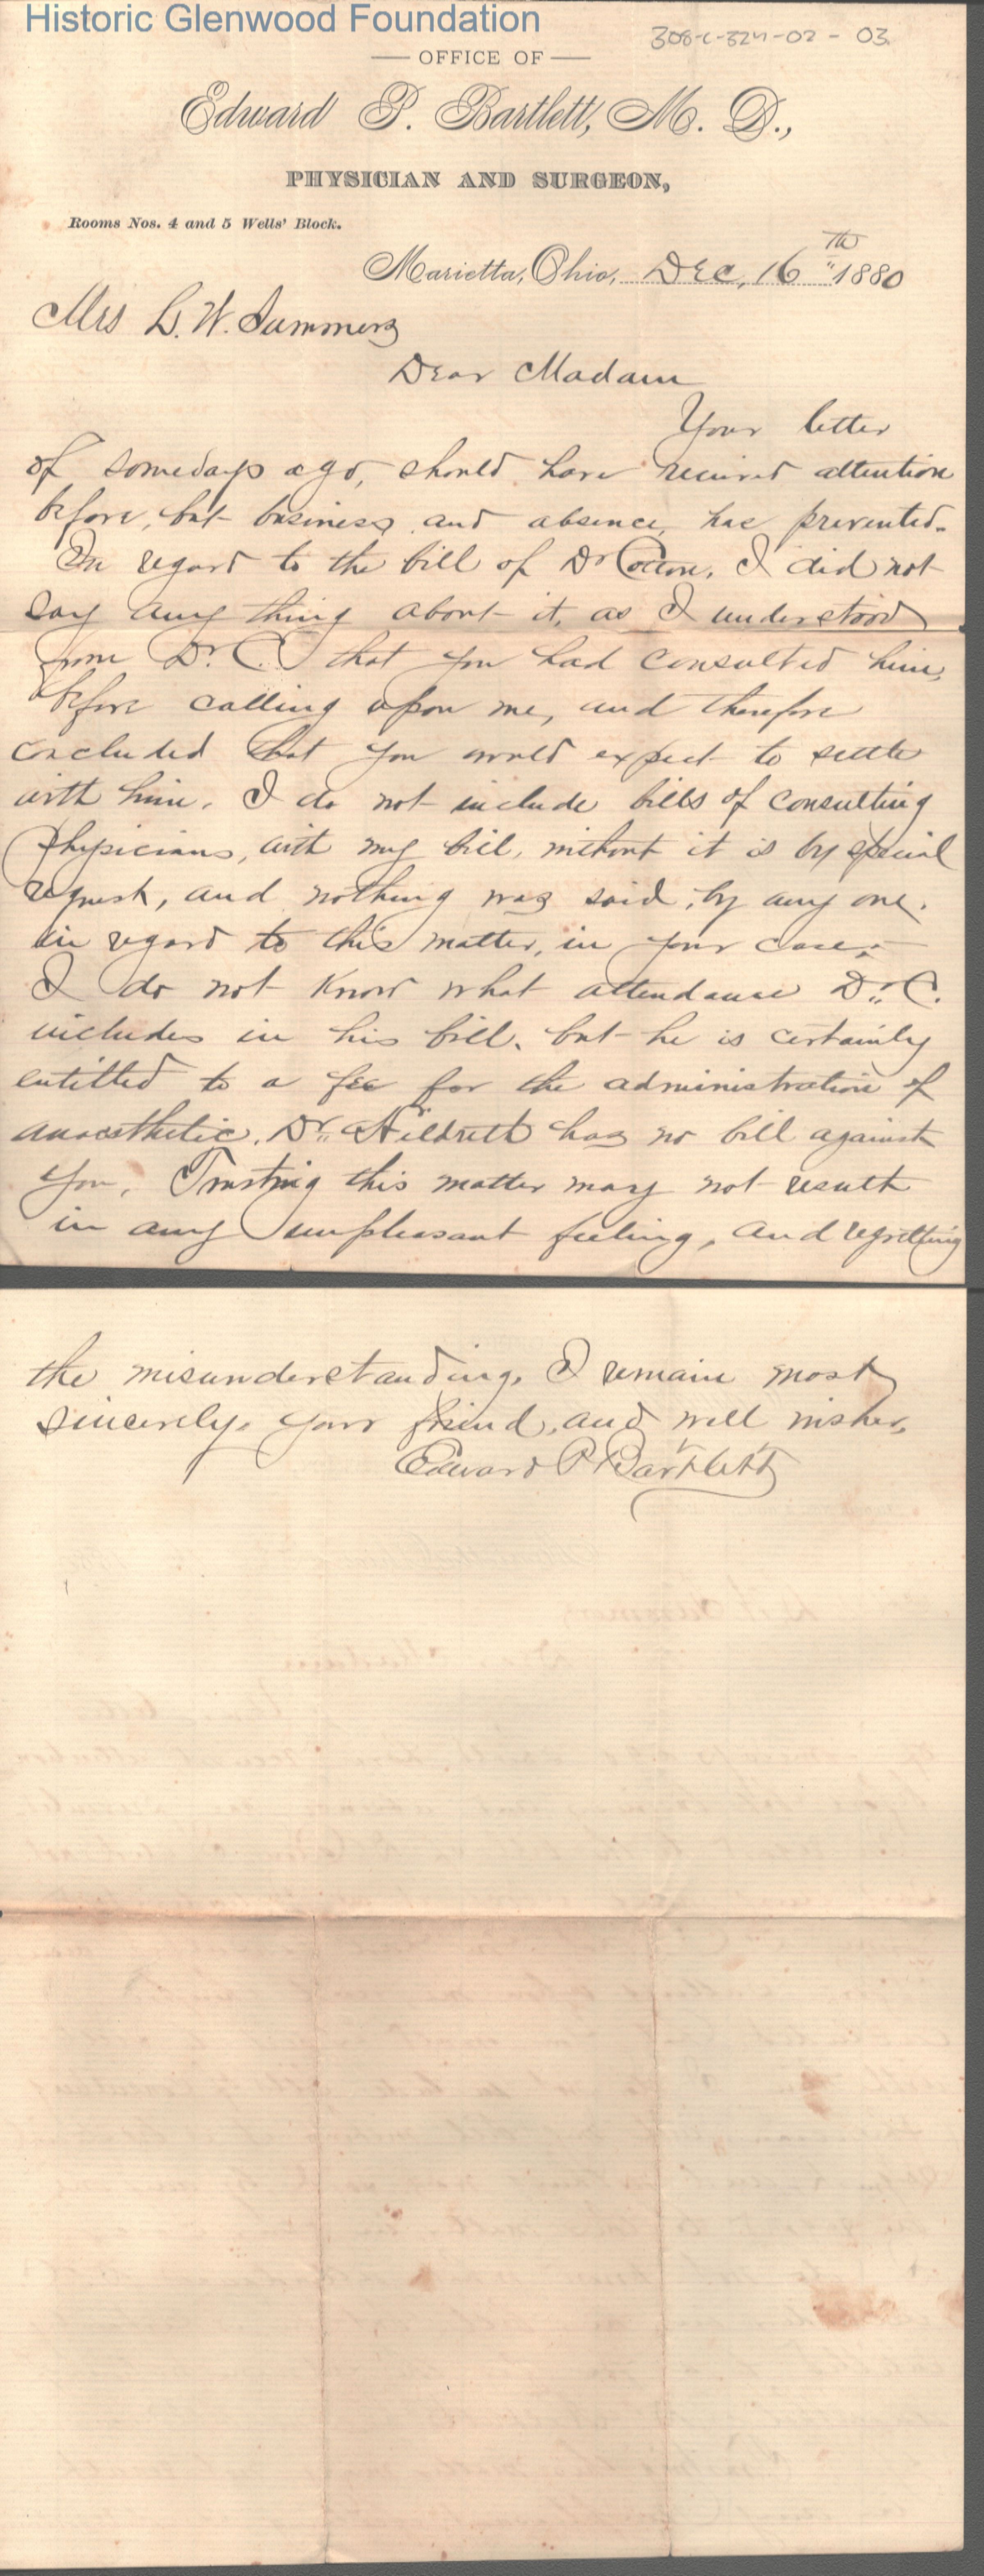 Historic Glenwood Foundation
308-C-324-02-03
OFFICE OF
Edward P. Bartlett, M. D.,
PHYSICIAN AND SURGEON,
Rooms Nos. 4 and 5 Wells' Block.
Marietta, Ohio, Dec. 16th 1880
Mrs L. W. Summers
Dear Madam
Your letter
of somedays ago, should have received attention
before, but business and absence, has prevented.
In regard to the bill of Dr Cotton, I did not
say any thing about it, as I understood
from Dr. C. that you had consulted him,
before calling upon me, and therefore
concluded that you would expect to settle
with him. I do not include bills of consulting
Physicians, with my bill, without it is by special
request, and nothing was said, by any one,
in regard to this matter, in your case.
I do not know what attendance Dr. C.
includes in his bill, but he is certainly
entitled to a fee for the administration of
anaesthetic. Dr. Hildreth has no bill against
you. Trusting this matter may not result
in any unpleasant feeling, and regretting
the misunderstanding, I remain most
sincerely, your friend, and well wisher,
Edward P Bartlett